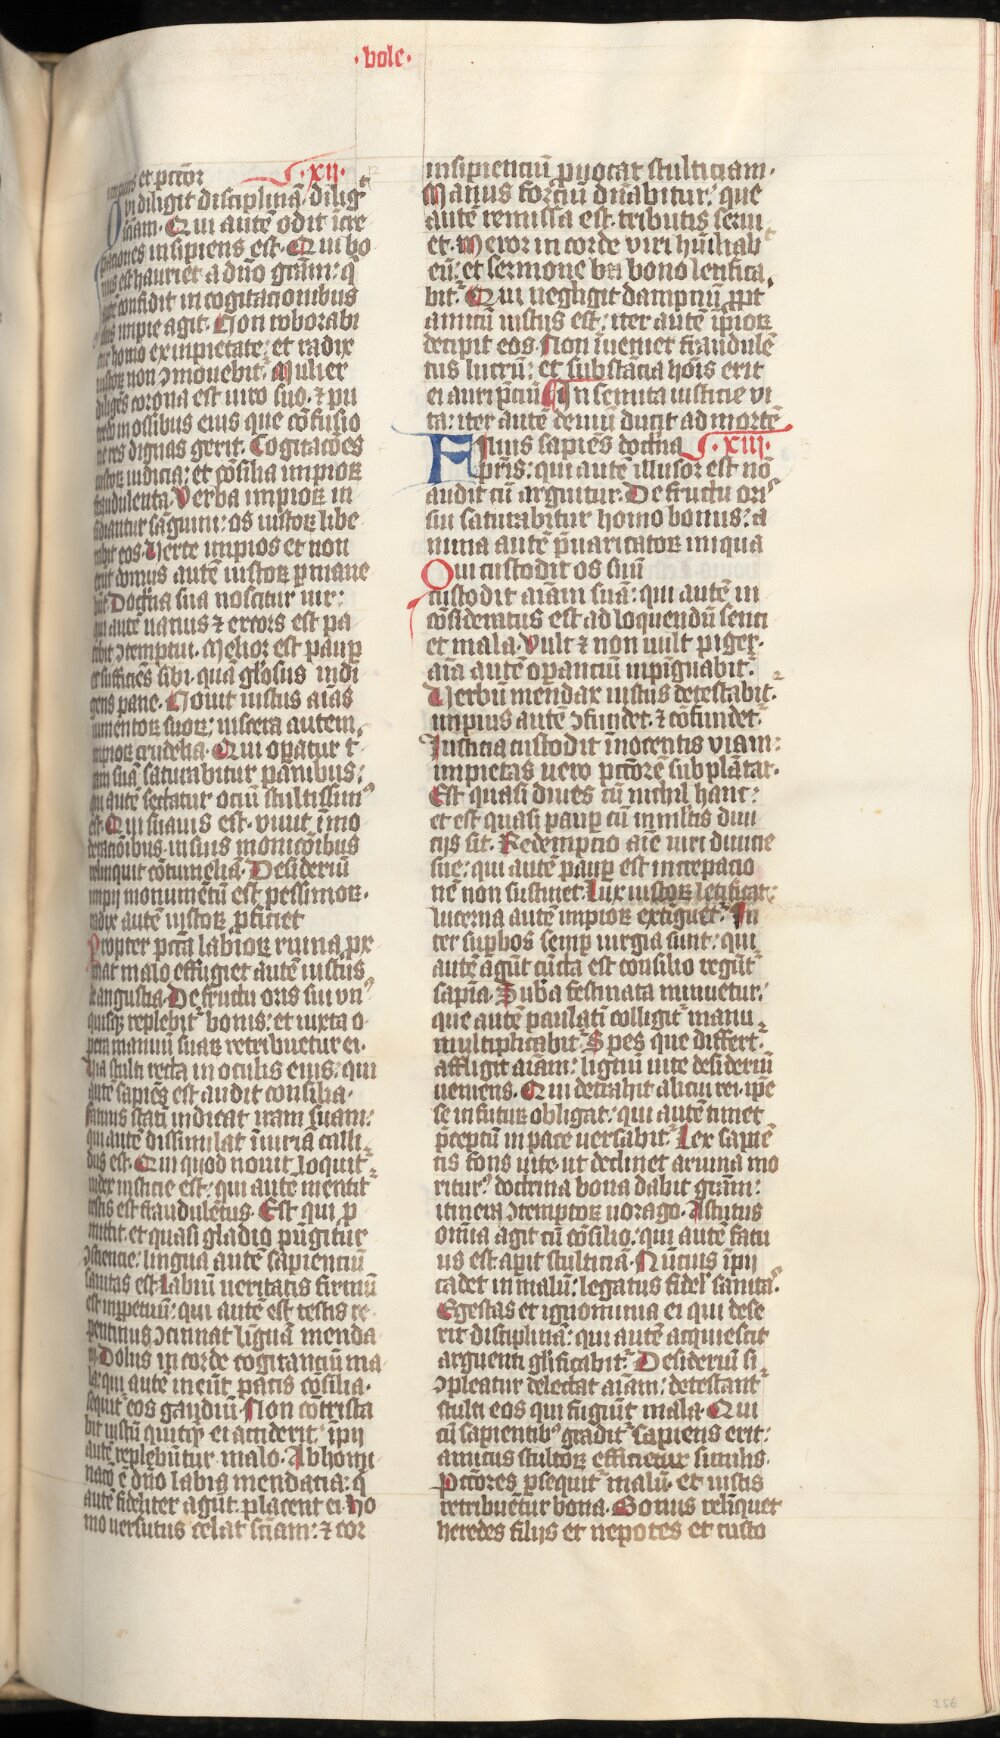 ·bole·
impius et pcc̄or ·xii·
Qvi diligit disciplinā. dilig̉
sciam. Qui autē odit īcre
pacōnes insipiens est. Qui bo
nus est hauriet a dn̄o grām: q̄
autē confidit in cogitacionibus
suis impie agit. Non roborabi
tur homo ex inpietate: et radix
iustoꝝ non ꝯmouebit̉. Mulier
diligēs corona est uiro suo. ⁊ pu
tredo in ossibus eius que cōfusio
ne res dignas gerit. Cogitacōes
iustoꝝ iudicia: et cōsilia impioꝝ
fraudulenta. Verba impioꝝ in
sidiantur sāguini: os iustoꝝ libe
rabit eos. Verte impios et non
erūt domus autē iustoꝝ ꝑmane
būt. Doctͥna sua noscitur uir:
qui autē uanus ⁊ excors est pa
tebit ꝯtemptui. Melior est paupꝑ
et sufficiēs sibi. quā gl̄osus indi
gens pane. Nouit iustus aīas
iumentoꝝ suoꝝ: uiscera autem
impioꝝ crudelia. Qui oꝑatur t̉
ram suā saturabitur panibus:
qui autē sectatur ociū stultissimꝰ
est. Qui suauis est. viuit ī mo
deracōibus. in suis monicōibus
relinquit cōtumeliā. Desideriū
impij monumētū est pessimoꝝ.
radix autē iustoꝝ ꝓficiet
Propter pctā labioꝝ ruina ꝓx
imat malo effugiet autē iustus
de angustia. De fructu oris sui vnꝰ
quisqꝫ replebit̉ bonis: et iuxta o
pera manuū suaꝝ retribuetur ei.
Via stulti recta in oculis eius: qui
autē sapiēs est audit consilia.
Fatuus statī indicat iram suam:
qui autē dissimulat īiuriā calli
dus est. Qui quod nouit loquit̉
index iusticie est: qui autē mentit̉
testis est fraudulētus. Est qui ꝓ
mittit. et quasi gladio pūgitur
ꝯsciencie: lingua autē sapienciū
sanitas est. Labiū ueritatis firmū
est inꝑpetuū: qui autē est testis re
pentinus ꝯcinnat liguā menda
cij. Dolus in corde cogitanciū ma
la: qui autē ineūt pacis cōsilia.
sequit̉ eos gaudiū. Non cōtrista
bit iustū quitqͥd ei acciderit: īpij
autē replebūtur malo. Abhomi
nacō ē dn̄o labia mendacia: q̄
autē fideliter agūt. placent ei. Ho
mo uersutus celat sciam: ⁊ cor
insipienciū ꝓuocat stulticiam.
Manus forciū dn̄abitur: que
autē remissa est. tributis serui
et. Meror in corde viri hūiliab̉
eū: et sermone bono letifica
bit̉. Qui negligit dampnū ꝓpt̉
amicū iustus est: iter autē īpioꝝ
decipit eos. Non īueniet fraudulē
tus lucrū: et substācia hoīs erit
ei auri ꝑciū. In semita iusticie vi
ta: iter autē deuiū ducit ad mortē
Filius sapiēs doctͥna ·xiii·
pr̄is: qui autē illusor est nō
audit cū arguitur. De fructu oriꝰ
sui saturabitur homo bonus: a
nima autē p̄uaricatoꝝ iniqua
Qui custodit os suū
custodit aīam suā: qui autē in
cōsideratus est ad loquendū senci
et mala. Vult ⁊ non uult piger.
aīa autē oꝑanciū inpīguabit̉.
Verbū mendax iustus detestabit̉.
impius autē ꝯfundet̉ ⁊ cōfundet̉.
Iusticia custodit īnocentis viam:
impietas uero pcc̄orē subplātat.
Est quasi diues cū nichil habꝫ:
et est quasi paupꝑ cū in mltis diui
cijs sit. Redempcio aīe uiri diuicie
sue: qui autē paupꝑ est increpacio
nē non sustinet. Lux iustoꝝ letificat:
lucerna autē impioꝝ extīguet̉. In
ter suꝑbos semꝑ iurgia sunt: qui
autē agūt cūcta est consilio regūt̉
sapīa. Suba festinata minuetur:
que autē paulati colligit̉ manu
multiplicabit̉. Spes que differt̉
affligit aīam: lignū uite desideriū
ueniens. Qui detrahit alicui rei. ip̄e
se in futuꝝ obligat: qui autē timet
p̄ceptū in pace uersabit̉. Lex sapiē
tis fons uite. ut declinet a ruina mo
ritur: doctrina bona dabit grām:
itinera ꝯtemptoꝝ uorago. Astutus
om̄ia agit cū cōsilio: qui autē fatu
us est. aꝑit stulticiā. Nūcius īpij
cadet in malū: legatus fidel̉ sanitaꝰ.
Egestas et ignominia ei qui dese
rit disciplinā: qui autē acquiescit
arguenti gl̄ificabit̉. Desideriū si
ꝯpleatur delectat aīam: detestant̉
stulti eos qui fugiūt mala. Qui
cū sapientibꝰ gradit̉ sapiens erit:
amicus stultoꝝ efficietur similis.
Pcc̄ores ꝑsequit̉ malū. et iustis
retribuētur bona. Bonus relīquet
heredes filijs et nepotes et custo
356